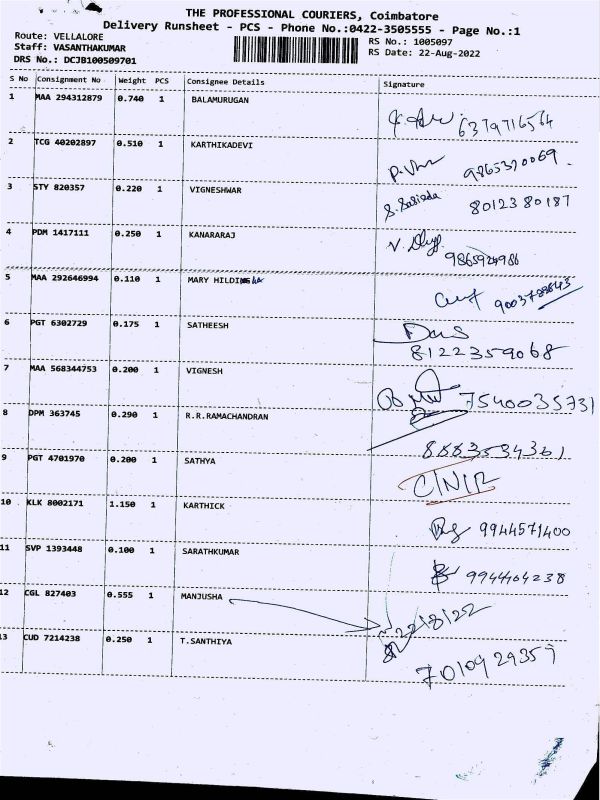 THE PROFESSIONAL COURIERS, Coimbatore
Delivery Runsheet - PCS - Phone No.:0422-3505555 - Page No.:1
Route: VELLALORE
Staff: VASANTHAKUMAR
DRS No.: DCJB100509701
RS No.: 1005097
RS Date: 22-Aug-2022
S No Consignment No Weight PCS Consignee Details Signature
1 MAA 294312879 0.740 1 BALAMURUGAN 6379716564
2 TCG 40202897 0.510 1 KARTHIKADEVI 9865320069
3 STY 820357 0.220 1 VIGNESHWAR 8012380187
4 PDM 1417111 0.250 1 KANARARAJ 9865924986
5 MAA 292646994 0.110 1 MARY
6 PGT 6302729 0.175 1 SATHEESH 8122359068
7 MAA 568344753 0.200 1 VIGNESH 7540035731
8 DPM 363745 0.290 1 R.R.RAMACHANDRAN 8883534361
9 PGT 4701970 0.200 1 SATHYA
10 KLK 8002171 1.150 1 KARTHICK 9944571400
11 SVP 1393448 0.100 1 SARATHKUMAR 9944464238
12 CGL 827403 0.555 1 MANJUSHA 22/8/22
13 CUD 7214238 0.250 1 T.SANTHIYA 7010929357